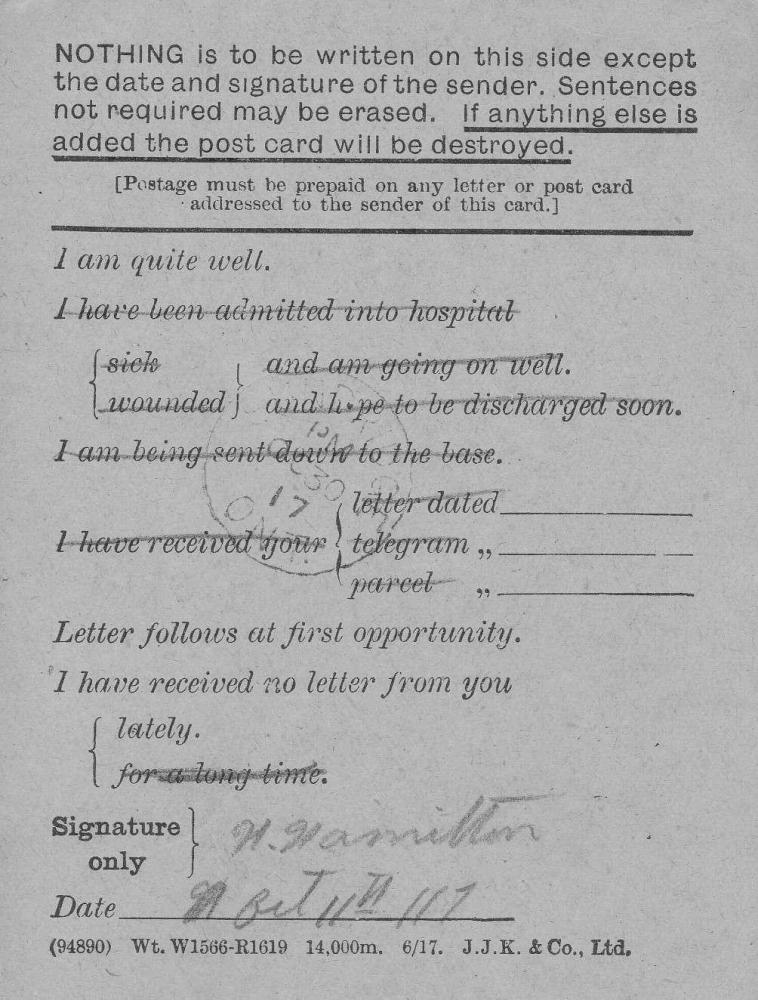 NOTHING is to be written on this side except
the date and signature of the sender. Sentences
not required may be erased. If anything else is
added the post card will be destroyed.
[Postage must be prepaid on any letter or post card
addressed to the sender of this card.]
I am quite well.
I have been admitted into hospital
sick and am going on well.
wounded and hope to be discharged soon.
I am being sent down to the base.
letter dated
I have received your telegram „
parcel „
Letter follows at first opportunity.
I have received no letter from you
lately.
for a long time.
Signature
only
H. Hamilton
Date Oct 11th /17
(94890) Wt. W1566-R1619 14,000m. 6/17. J.J.K. & Co., Ltd.